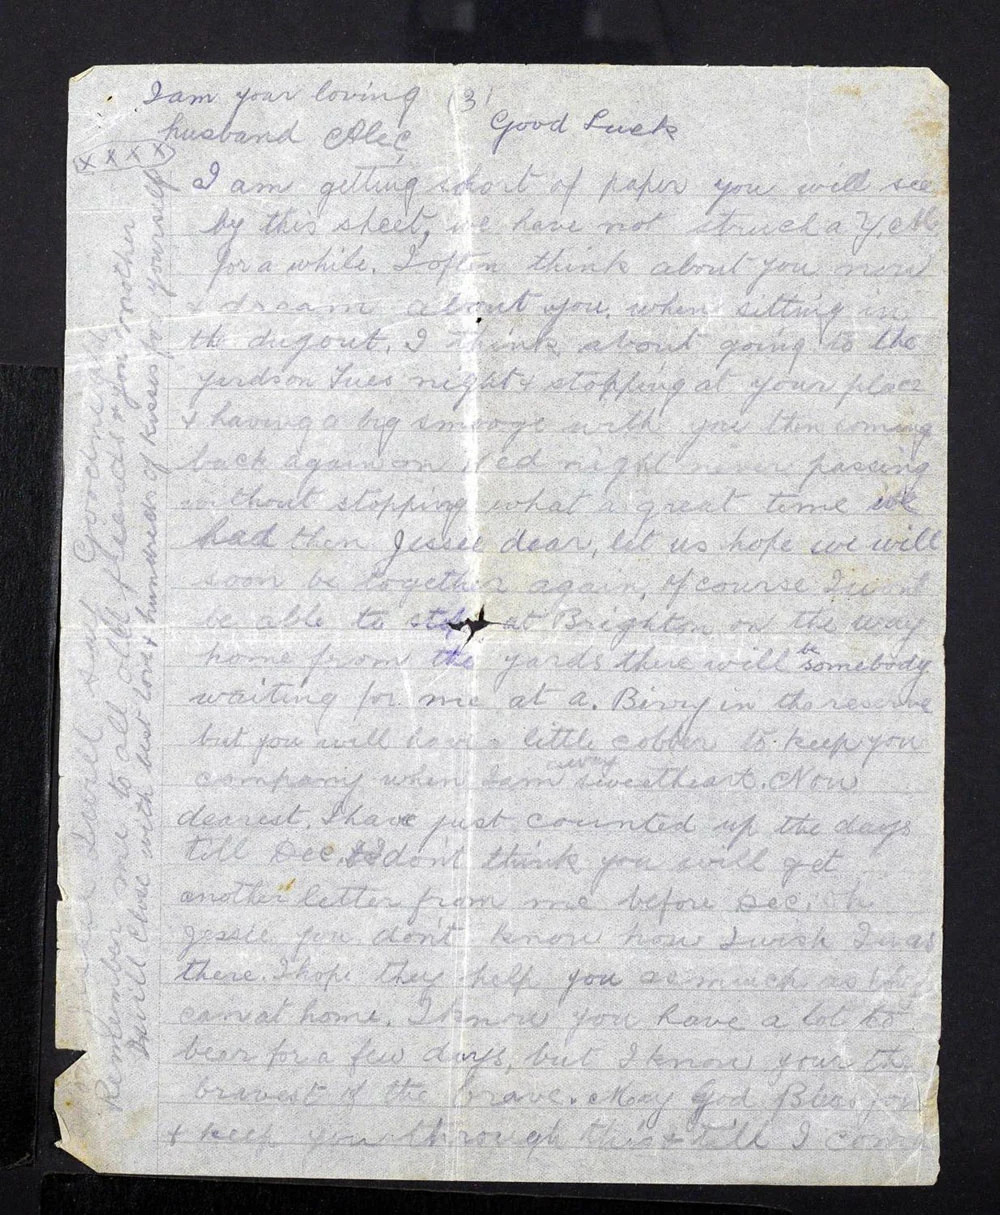 I am your loving (3)
husband Alec, Good Luck
x x x x
I am getting short of paper you will see
by this sheet, we have not struck a Y.
for a while. I often think about you now
& dream about you, when sitting in
the dugout. I think about going to the
yards on Tues night & stopping at your place
& having a big smooge with you then coming
back again on Wed night never passing
without stopping what a great time we
had then Jessie dear, let us hope we will
soon be together again, of course I wont
be able to at Brighton on the
home from the yards there will be somebody
waiting for me at a. in the reserve
but you will have a little cobber to keep you
company when I am away sweetheart. Now
dearest, I have just counted up the days
till Dec, dont think you will get
another letter from me before Dec, oh
Jessie you don't know how I wish I was
there. I hope they help you as much as they
can at home. I know you have a lot to
bear for a few days, but I know your the
bravest of the brave. May God Bless you
& keep you through this & till I come
I will say Goodnight
Remember me to all old friends & your mother
I will close with best love & hundreds of kisses for yourself